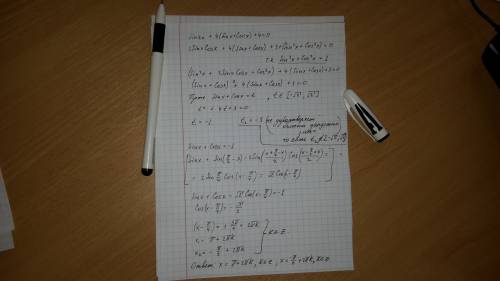 sin2x + 4(sinx+cosx)+4=0
2sinx cosx + 4(sinx+cosx)+3+(sin²x+cos²x)=0
т.к. sin²x+cos²x=1
(sin²x + 2sinx cosx + cos²x) + 4(sinx+cosx)+3=0
(sinx+cosx)² + 4(sinx+cosx)+3=0
Пусть sinx+cosx=t, t∈[-√2;√2]
t²+4t+3=0
t₁=-1 t₂=-3 не удовлетворяет
sinx+cosx=-1
= 2 sin π/4 cos(x-π/4) = √2 cos(x-π/4)
sinx+cosx=√2 cos(x-π/4)=-1
cos(x-π/4)=-√2/2
(x-π/4)=±3π/4+2πk
x₁=π+2πk
x₂=-π/2+2πk } k∈Z
Ответ: x=π+2πk, k∈Z; x=-π/2+2πk, k∈Z